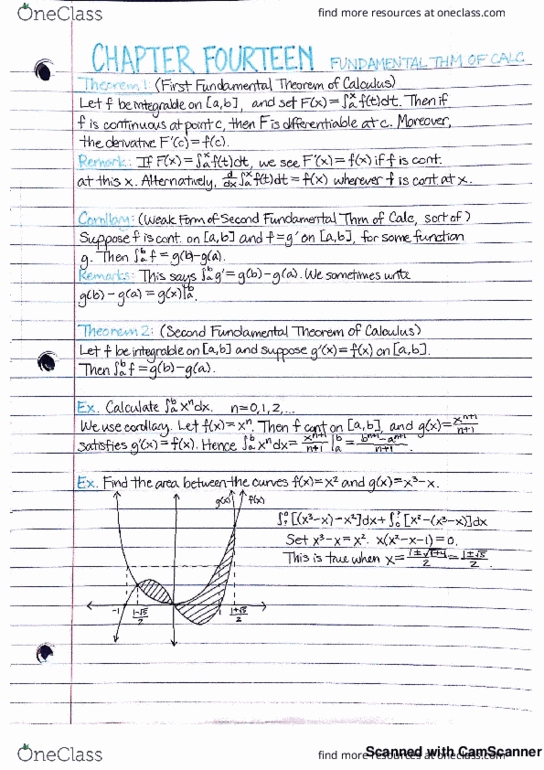 OneClass
find more resources at oneclass.com
CHAPTER FOURTEEN FUNDAMENTAL THM OF CALC
Theorem 1: (First Fundamental Theorem of Calculus)
Let f be integrable on [a,b], and set F(x) = ∫ₐˣ f(t)dt. Then if
f is continuous at point c, then F is differentiable at c. Moreover,
the derivative F'(c) = f(c).
Remark: If F(x) = ∫ₐˣ f(t)dt, we see F'(x) = f(x) if f is cont.
at this x. Alternatively, d/dx ∫ₐˣ f(t)dt = f(x) wherever f is cont at x.
Corollary: (Weak Form of Second Fundamental Thm of Calc, sort of)
Suppose f is cont. on [a,b] and f = g' on [a,b], for some function
g. Then ∫ₐᵇ f = g(b) - g(a).
Remarks: This says ∫ₐᵇ g' = g(b) - g(a). We sometimes write
g(b) - g(a) = g(x)|ₐᵇ.
Theorem 2: (Second Fundamental Theorem of Calculus)
Let f be integrable on [a,b] and suppose g'(x) = f(x) on [a,b].
Then ∫ₐᵇ f = g(b) - g(a).
Ex. Calculate ∫ₐᵇ xⁿdx. n=0,1,2,...
We use corollary. Let f(x) = xⁿ. Then f cont on [a,b], and g(x) = xⁿ⁺¹/n+1
satisfies g'(x) = f(x). Hence ∫ₐᵇ xⁿdx = xⁿ⁺¹/n+1 |ₐᵇ = bⁿ⁺¹-aⁿ⁺¹/n+1.
Ex. Find the area between the curves f(x) = x² and g(x) = x³-x.
g(x) f(x)
∫?⁰ [(x³-x)-x²]dx + ∫₀? [x²-(x³-x)]dx
Set x³-x = x². x(x²-x-1) = 0.
This is true when x = 1±√1+4/2 = 1±√5/2.
-1 1-√5/2 1+√5/2
OneClass
find more resources at oneclass.com
Scanned with CamScanner